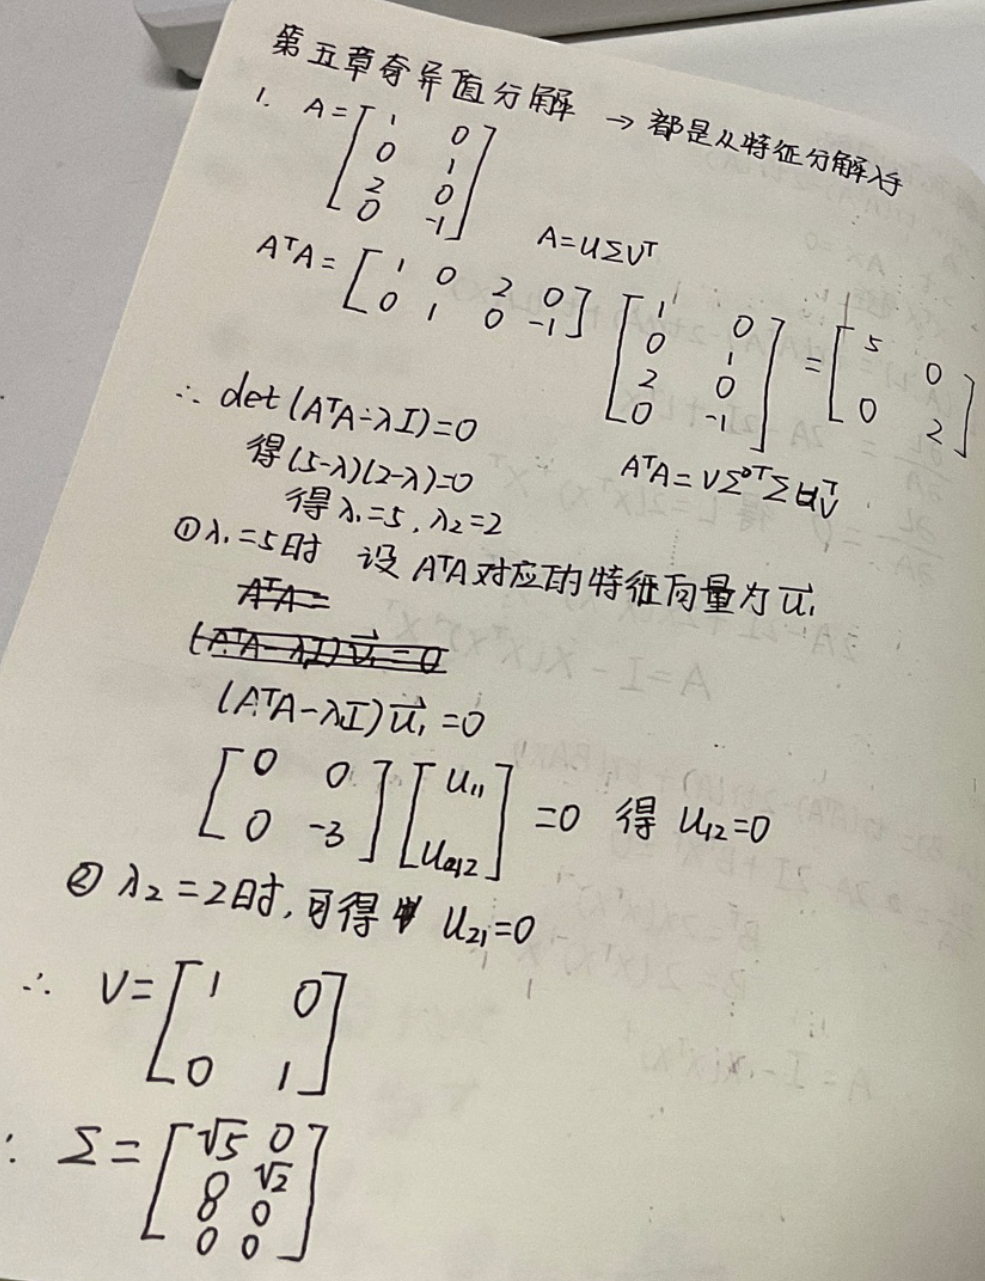 第五章奇异值分解 → 都是从特征分解入手
1. A = [1 0; 0 1; 2 0; 0 -1]
A = UΣVᵀ
AᵀA = [1 0 2 0; 0 1 0 -1] [1 0; 0 1; 2 0; 0 -1] = [5 0; 0 2]
∴ det(AᵀA-λI)=0
得(5-λ)(2-λ)=0
AᵀA = VΣᵀΣVᵀ
得λ₁=5, λ₂=2
①λ₁=5时 设AᵀA对应的特征向量为u⃗₁
AᵀA=
(AᵀA-λI)v⃗₁=0
(AᵀA-λI)u⃗₁=0
[0 0; 0 -3] [u₁₁; u₁₂] =0 得 u₁₂=0
②λ₂=2时,可得 u₂₁=0
∴ V = [1 0; 0 1]
∴ Σ = [√5 0; 0 √2; 0 0; 0 0]